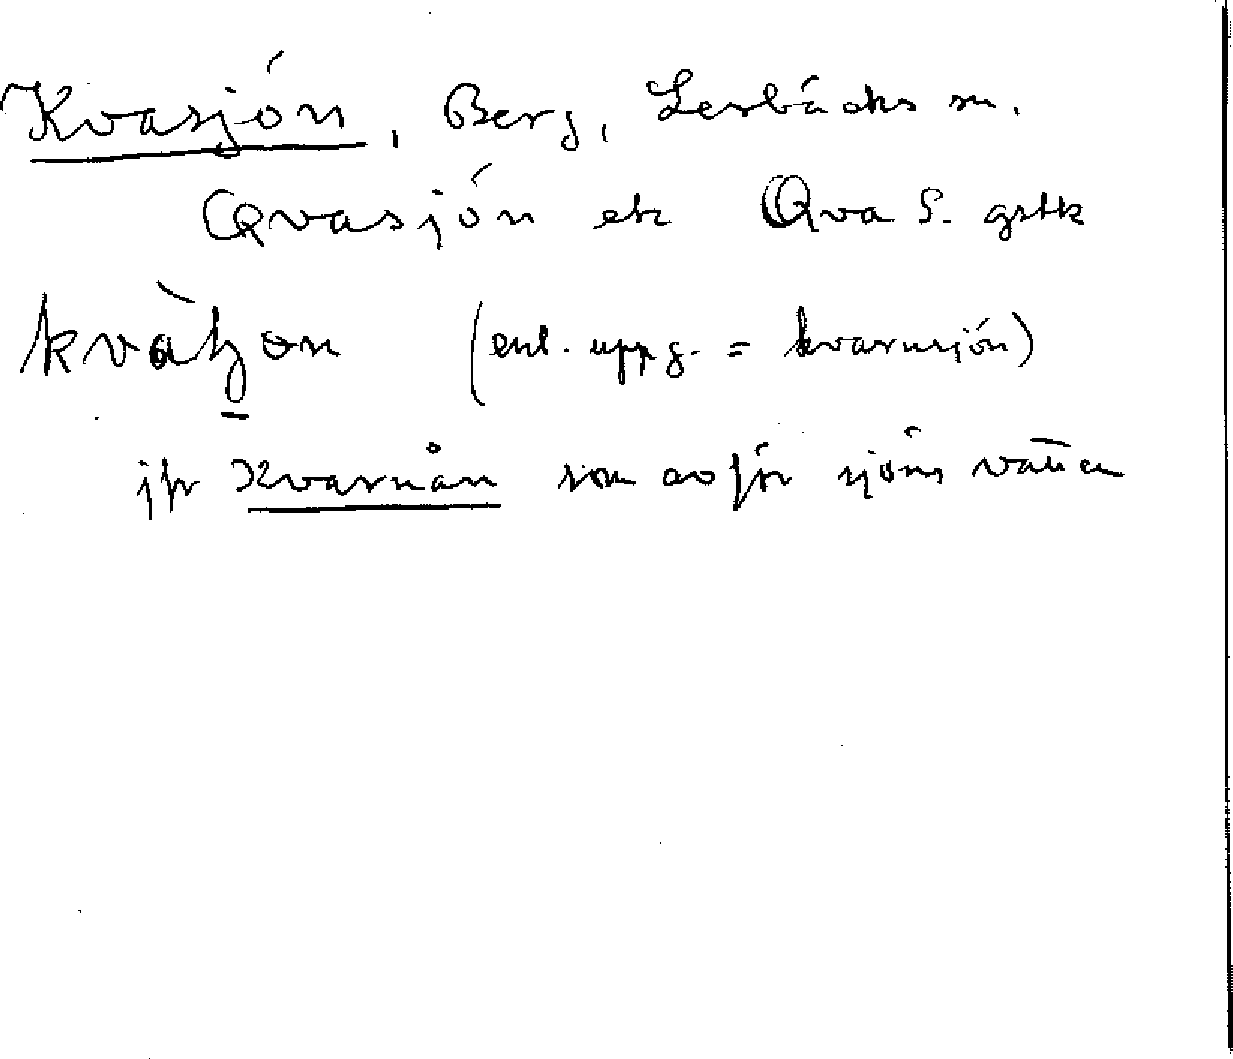 Kvasjön, Berg, Lerbäcks sn.
Qvasjön ek Qva S. gstk
(enl. uppg. = kvarnsjön)
jfr Kvarnån som avför sjöns vatten